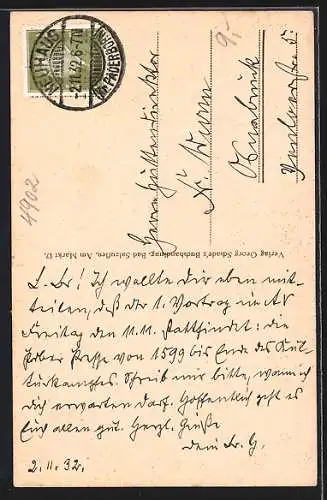 NEUHAUS
(Kr. PADERBORN)
-2.11.32.6-7N
9,-
4902
Herrn Hüttendirektor
Dr. Wurm
Osnabrück
Verlag Georg Schade's Buchhandlung, Bad Salzuflen, Am Markt 17.
L. Fr.! Ich wollte Dir eben mit-
teilen, daß der 1. Vortrag
Freitag den 11.11. stattfindet: die
von 1599 bis Ende des Kul-
turkampfes. Schreib mir bitte, wann ich
dich erwarten darf. Hoffentlich geht es
Euch allen gut. Herzl. Grüße
dein Br. G.
2.11.32.